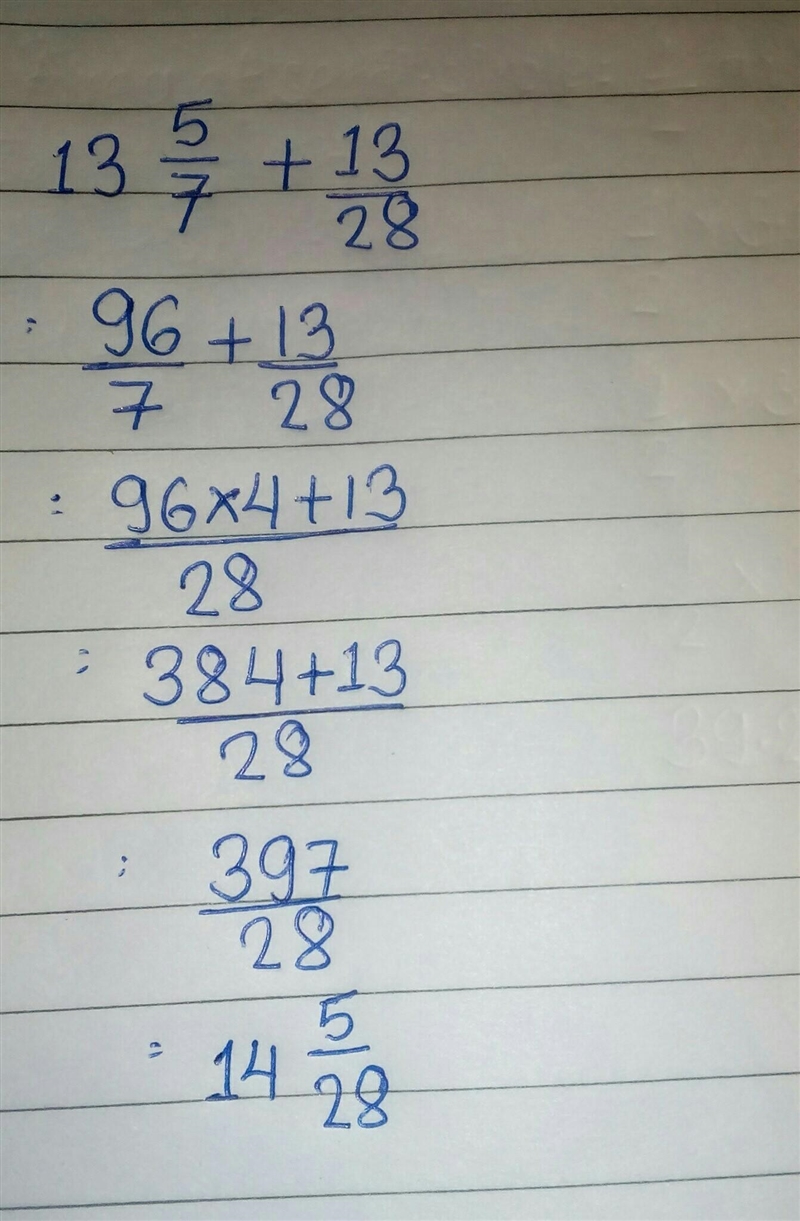 13 5/7 + 13/28
= 96/7 + 13/28
= 96×4+13/28
= 384+13/28
= 397/28
= 14 5/28